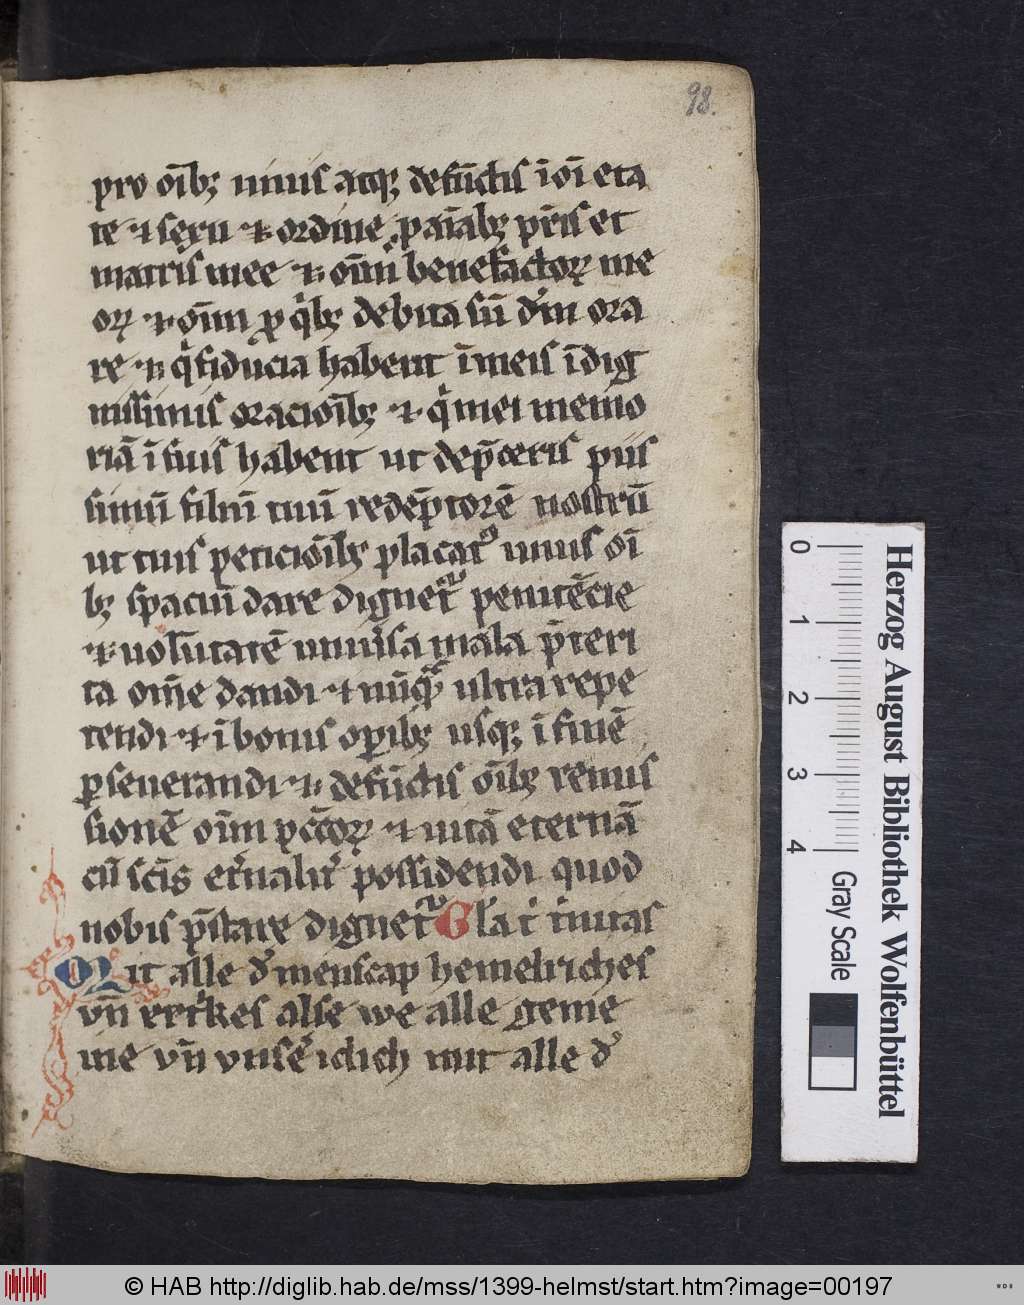 98.
pro oı̅bꝫ uiuis atqꝫ defu̅ctis i̅ oı̅ eta
te ⁊ sexu ⁊ ordine p̲ ai̅abꝫ pr̅is et
matris mee ⁊ om̅iu̅ benefactoꝝ me
oꝝ ⁊ om̅iu̅ ꝓ qͥbꝫ debita su̅ d̕m ora
re ⁊ qͥ fiducia habent i̅ meis i̅dig
nissimis oracioı̅bꝫ ⁊ qͥ mei memo
ria̅ i̅ suis habent ut dep̅ceris piis
simu̅ filiu̅ tuu̅ rede̅ptore̅ nostru̅
ut tuis peticioı̅bꝫ placat᷒ uiuis oı̅
bꝫ spaciu̅ dare dignet᷑ penite̅cie
⁊ uolu̅tate̅ uniu̕sa mala p̅teri
ta om̅e dandi ⁊ nu̅qᷓ ultra repe
tendi ⁊ i̅ bonis opibꝫ usqꝫ i̅ fine̅
ꝑseuerandi ⁊ defu̅ctis oı̅bꝫ remis
sione̅ oı̅m pctoꝝ ⁊ uita̅ eterna̅
cu̅ sc̅is et̕nalit̕ possidendi quod
nobis p̅stare dignet᷑ Gl̕a t̕ t̕nitas
Mit alle d̕ menscap hemelriches
vn̅ ertrikes alse we alle geme
ine vn̅ vnse̕ iclich mit alle d̕
0
1
2
3
4
Gray Scale
Herzog August Bibliothek Wolfenbüttel
© HAB http://diglib.hab.de/mss/1399-helmst/start.htm?image=00197